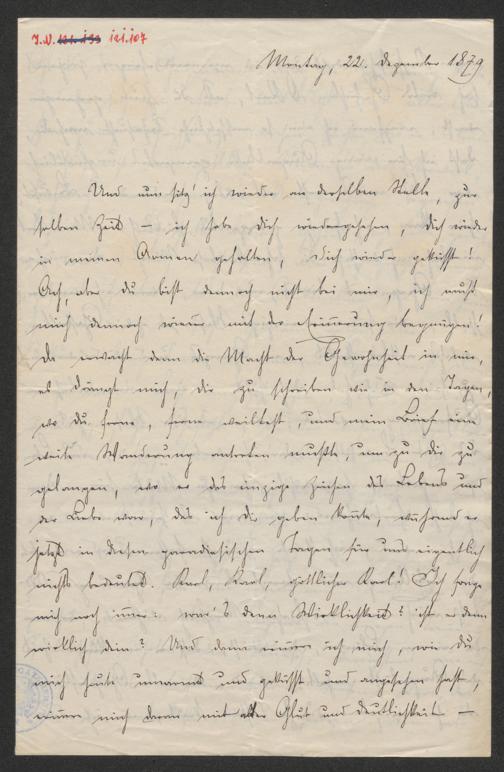 I.N. 121.107
Montag, 22. Dezember 1879.
Und nun sitz' ich wieder an derselben Stelle, zur
selben Zeit – ich habe dich wiedergesehen, dich wieder
in meinen Armen gehalten, dich wieder geküsst!
Ach, aber du bist dennoch nicht bei mir, ich muß
mich dennoch wieder mit der Erinnerung begnügen!
Da erwacht denn die Macht der Gewohnheit in mir,
es drängt mich, dir zu schreiben wie in den Tagen,
wo du ferne, ferne weiltest, und mein Brief eine
weite Wanderung antreten mußte, um zu dir zu
gelangen, wo er das einzige Zeichen des Lebens und
der Liebe war, das ich dir geben konnte, während er
jetzt in diesen paradiesischen Tagen für uns eigentlich
nichts bedeutet. Karl, Karl, göttlicher Karl! Ich frage
mich noch immer: war's denn Wirklichkeit? ist er denn
wirklich dein? Und dann erinnre ich mich, wie du
mich heute umarmt und geküsst und angesehen hast,
erinnre mich daran mit aller Glut und Deutlichkeit –